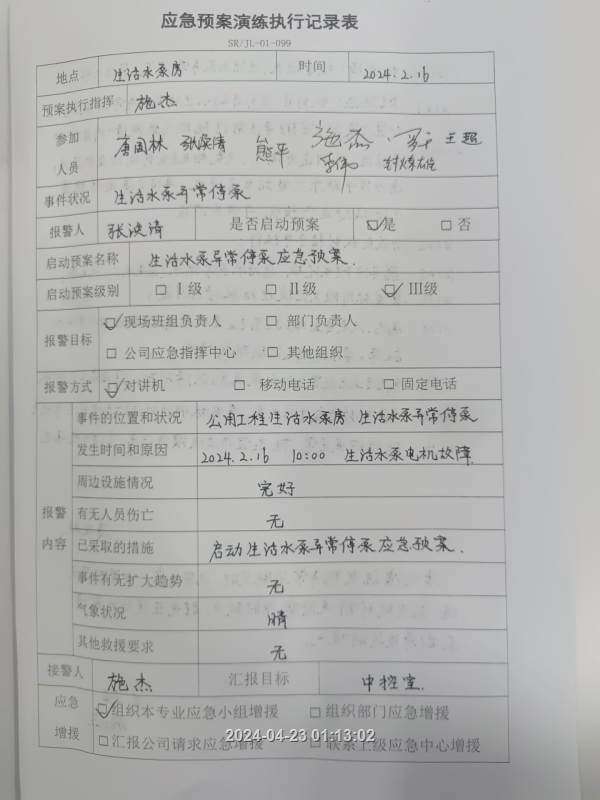 应急预案演练执行记录表
SR/JL-01-099
地点 生活水泵房 时间 2024.2.16
预案执行指挥 施杰
参加人员 唐国林 张溪清 熊平 施杰 王超
李伟
事件状况 生活水泵异常停泵
报警人 张溪清 是否启动预案 ☑是 □否
启动预案名称 生活水泵异常停泵应急预案.
启动预案级别 □Ⅰ级 □Ⅱ级 ☑Ⅲ级
报警目标 ☑现场班组负责人 □部门负责人
□公司应急指挥中心 □其他组织
报警方式 ☑对讲机 □移动电话 □固定电话
报警内容
事件的位置和状况 公用工程生活水泵房 生活水泵异常停泵
发生时间和原因 2024.2.16 10:00 生活水泵电机故障.
周边设施情况 完好
有无人员伤亡 无
已采取的措施 启动生活水泵异常停泵应急预案.
事件有无扩大趋势 无
气象状况 晴
其他救援要求 无
接警人 施杰 汇报目标 中控室.
应急增援 ☑组织本专业应急小组增援 □组织部门应急增援
□汇报公司请求应急增援 □联系上级应急中心增援
2024-04-23 01:13:02